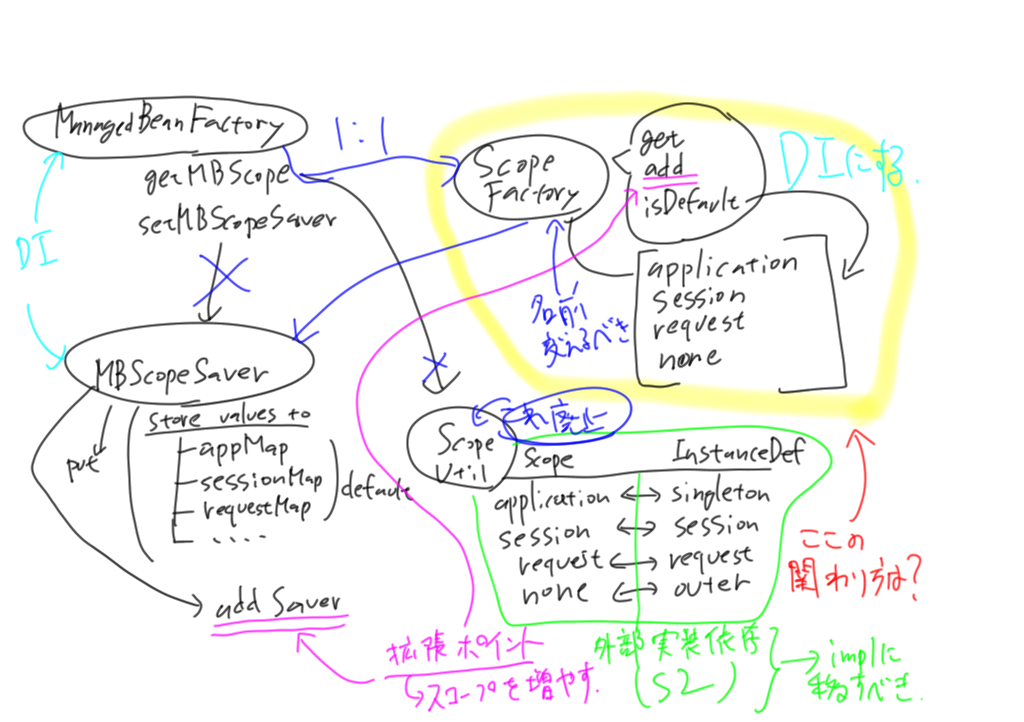 ManagedBeanFactory
getMBScope
setMBScopeSaver
1:1
Scope
Factory
get
add
isDefault
DIにする.
application
session
request
none
名前
変えるべき
DI
MBScopeSaver
put
store values to
appMap
sessionMap
requestMap
....
default
add Saver
Scope
Util
これ廃止
Scope InstanceDef
application ↔ singleton
session ↔ session
request ↔ request
none ↔ outer
ここの
関わり方は?
拡張ポイント
スコープを増やす.
外部実装依存
(S2)
implに
移すべき.